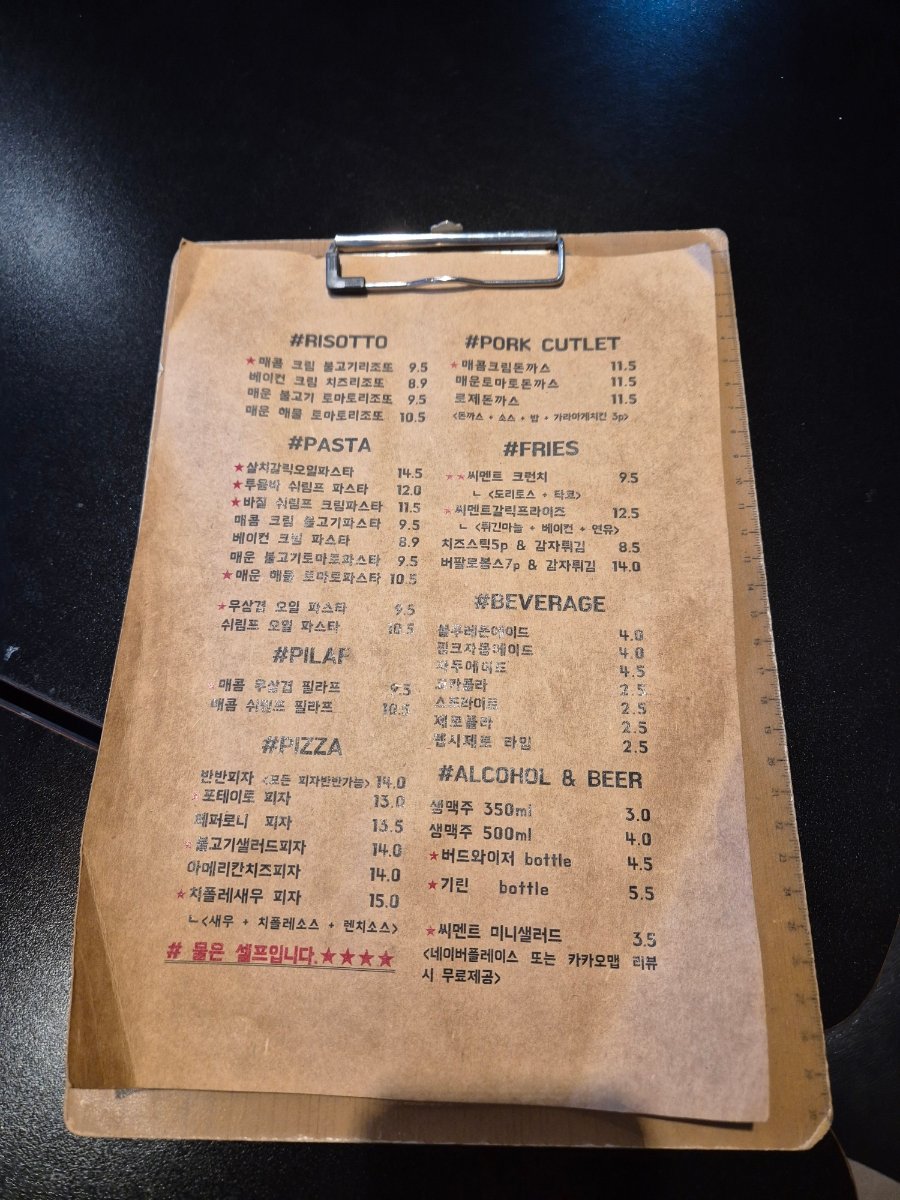 #RISOTTO
★매콤 크림 불고기리조또 9.5
베이컨 크림 치즈리조또 8.9
매운 불고기 토마토리조또 9.5
매운 해물 토마토리조또 10.5
#PASTA
★살치갈릭오일파스타 14.5
★투움바 쉬림프 파스타 12.0
★바질 쉬림프 크림파스타 11.5
매콤 크림 불고기파스타 9.5
베이컨 크림 파스타 8.9
매운 불고기토마토파스타 9.5
★매운 해물 토마토파스타 10.5
★우삼겹 오일 파스타 9.5
쉬림프 오일 파스타 10.5
#PILAF
★매콤 우삼겹 필라프 9.5
매콤 쉬림프 필라프 10.5
#PIZZA
반반피자 <모든 피자반반가능> 14.0
★포테이토 피자 13.0
페퍼로니 피자 13.5
★불고기샐러드피자 14.0
아메리칸치즈피자 14.0
★치폴레새우 피자 15.0
ㄴ<새우 + 치폴레소스 + 렌치소스>
# 물은 셀프입니다.★★★★
#PORK CUTLET
★매콤크림돈까스 11.5
매운토마토돈까스 11.5
로제돈까스 11.5
<돈까스 + 소스 + 밥 + 가라아게치킨 3p>
#FRIES
★★씨멘트 크런치 9.5
ㄴ <도리토스 + 타코>
★씨멘트갈릭프라이즈 12.5
ㄴ <튀긴마늘 + 베이컨 + 연유>
치즈스틱5p & 감자튀김 8.5
버팔로봉스7p & 감자튀김 14.0
#BEVERAGE
블루레몬에이드 4.0
핑크자몽에이드 4.0
자두에이드 4.5
코카콜라 2.5
스프라이트 2.5
제로콜라 2.5
펩시제로 라임 2.5
#ALCOHOL & BEER
생맥주 350ml 3.0
생맥주 500ml 4.0
★버드와이저 bottle 4.5
★기린 bottle 5.5
★씨멘트 미니샐러드 3.5
<네이버플레이스 또는 카카오맵 리뷰
시 무료제공>